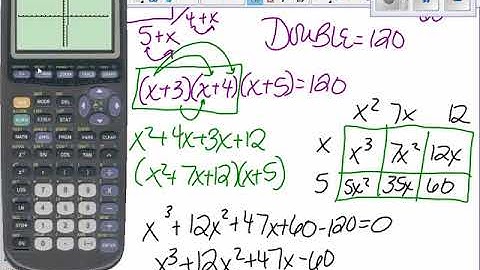 4+x
5+x
DOUBLE=120
(x+3)(x+4)(x+5)=120
x²+4x+3x+12
(x²+7x+12)(x+5)
x² 7x 12
x x³ 7x² 12x
5 5x² 35x 60
x³+12x²+47x+60-120=0
x³+12x²+47x-60